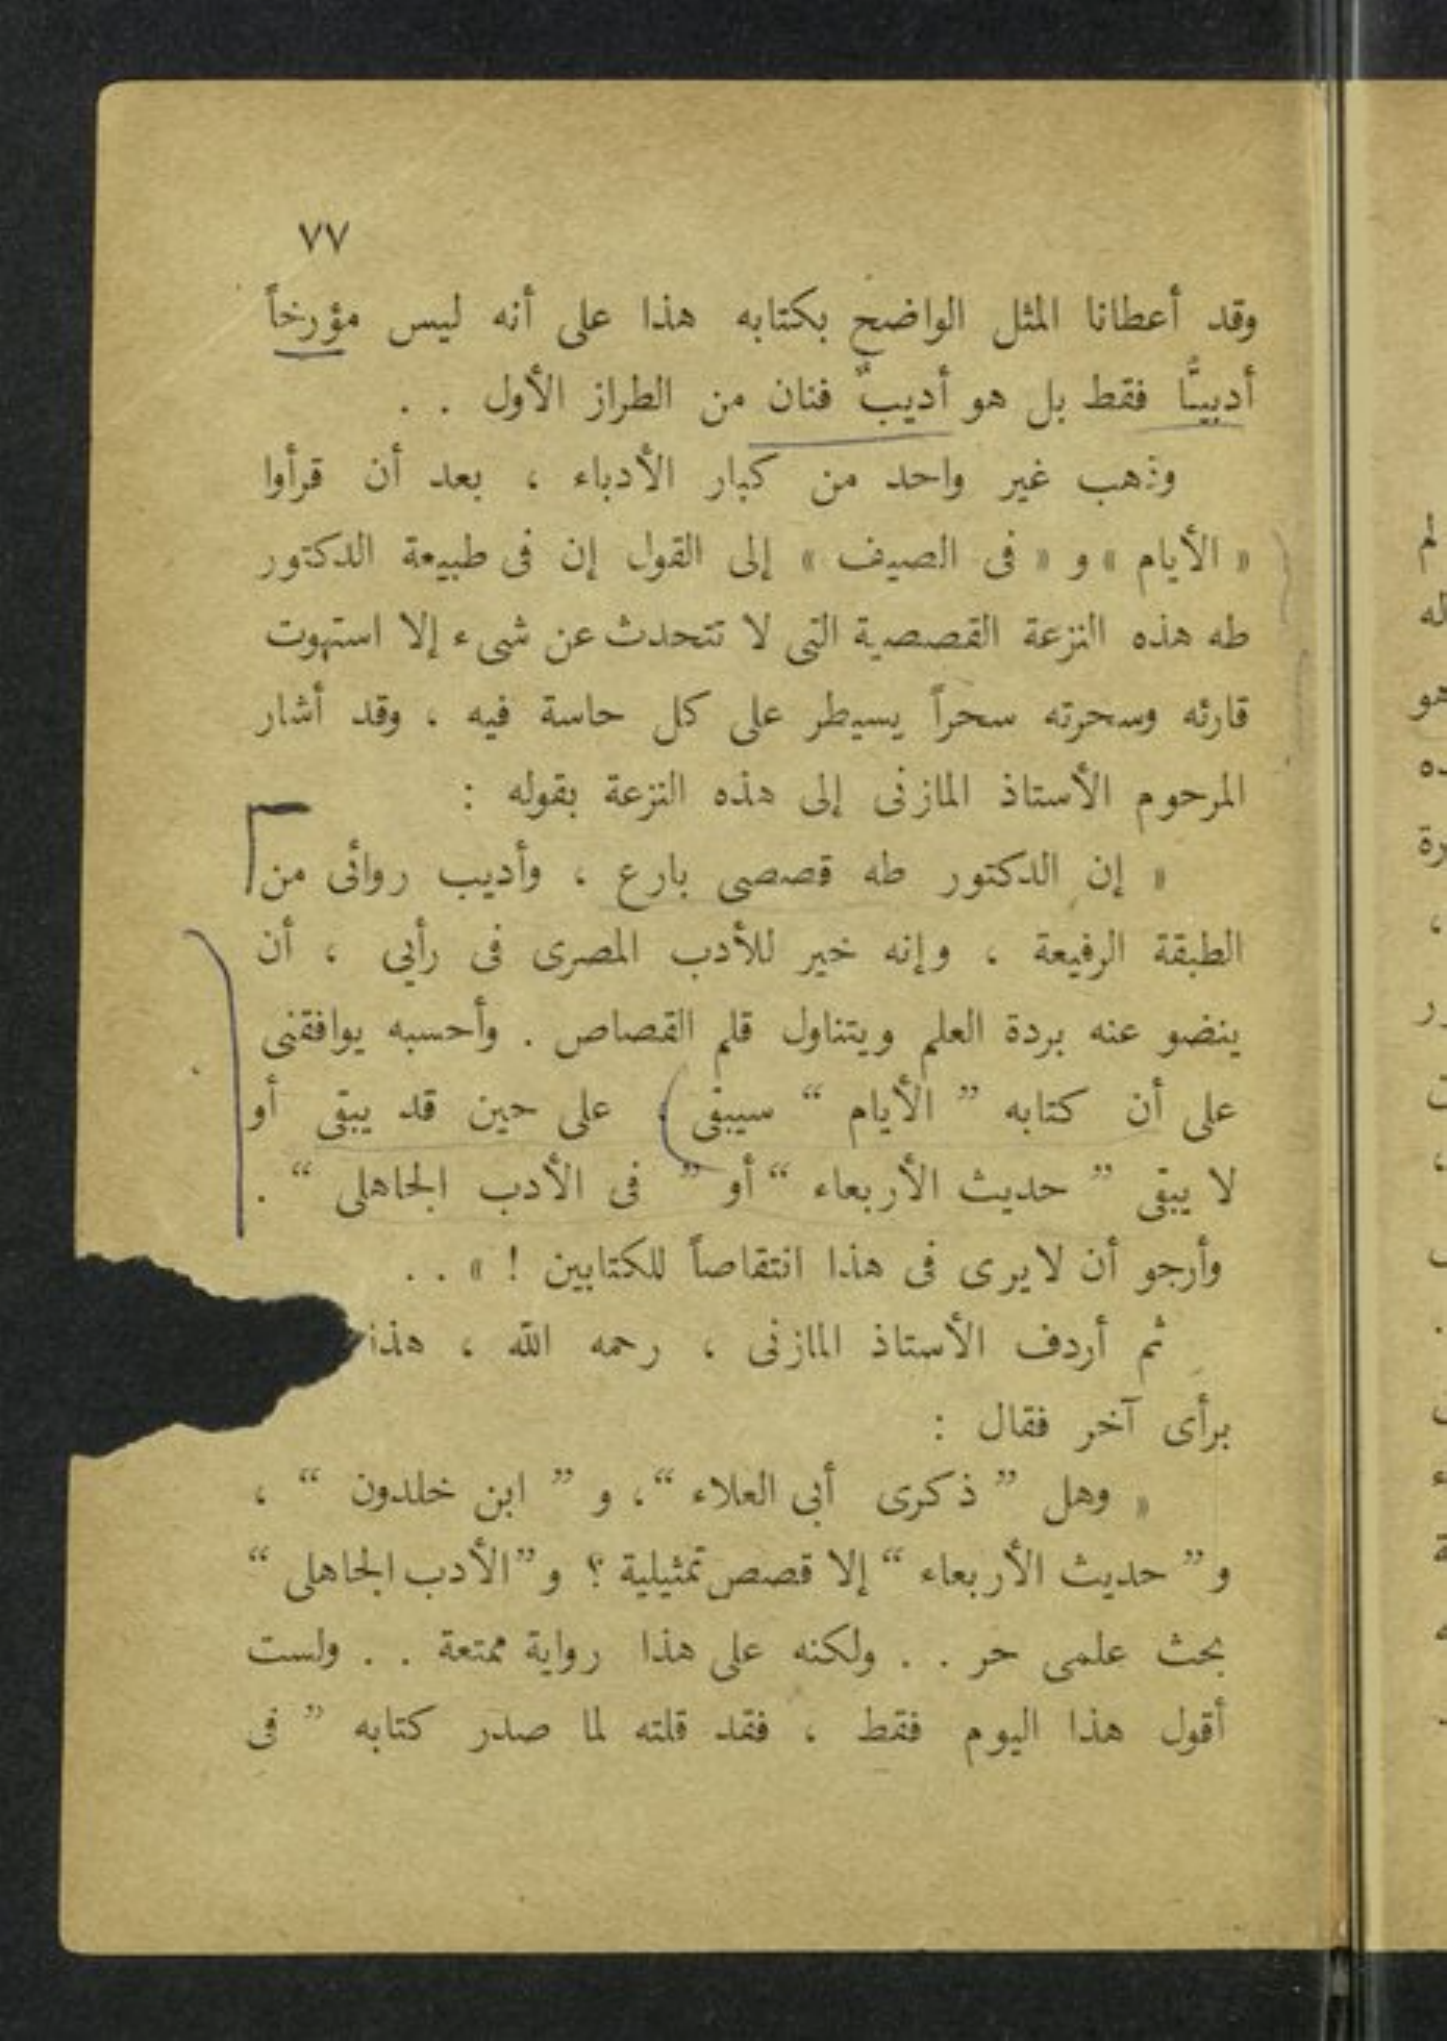 ٧٧
وقد أعطانا المثل الواضح بكتابه هذا على أنه ليس مؤرخاً
أدبيًّا فقط بل هو أديبٌ فنان من الطراز الأول . .
وذهب غير واحد من كبار الأدباء ، بعد أن قرأوا
« الأيام » و « فى الصيف » إلى القول إن فى طبيعة الدكتور
طه هذه النزعة القصصية التى لا تتحدث عن شىء إلا استهوت
قارئه وسحرته سحراً يسيطر على كل حاسة فيه ، وقد أشار
المرحوم الأستاذ المازنى إلى هذه النزعة بقوله :
« إن الدكتور طه قصصى بارع ، وأديب روائى من
الطبقة الرفيعة ، وإنه خير للأدب المصرى فى رأيى ، أن
ينضو عنه بردة العلم ويتناول قلم القصاص . وأحسبه يوافقنى
على أن كتابه ” الأيام “ سيبقى ، على حين قد يبقى أو
لا يبقى ” حديث الأربعاء “ أو ” فى الأدب الجاهلى “ .
وأرجو أن لا يرى فى هذا انتقاصاً للكتابين ! » . .
ثم أردف الأستاذ المازنى ، رحمه الله ، هذا
برأى آخر فقال :
« وهل ” ذكرى أبى العلاء “، و ” ابن خلدون “ ،
و ” حديث الأربعاء “ إلا قصص تمثيلية ؟ و ”الأدب الجاهلى “
بحث علمى حر . . ولكنه على هذا رواية ممتعة . . ولست
أقول هذا اليوم فقط ، فقد قلته لما صدر كتابه ” فى